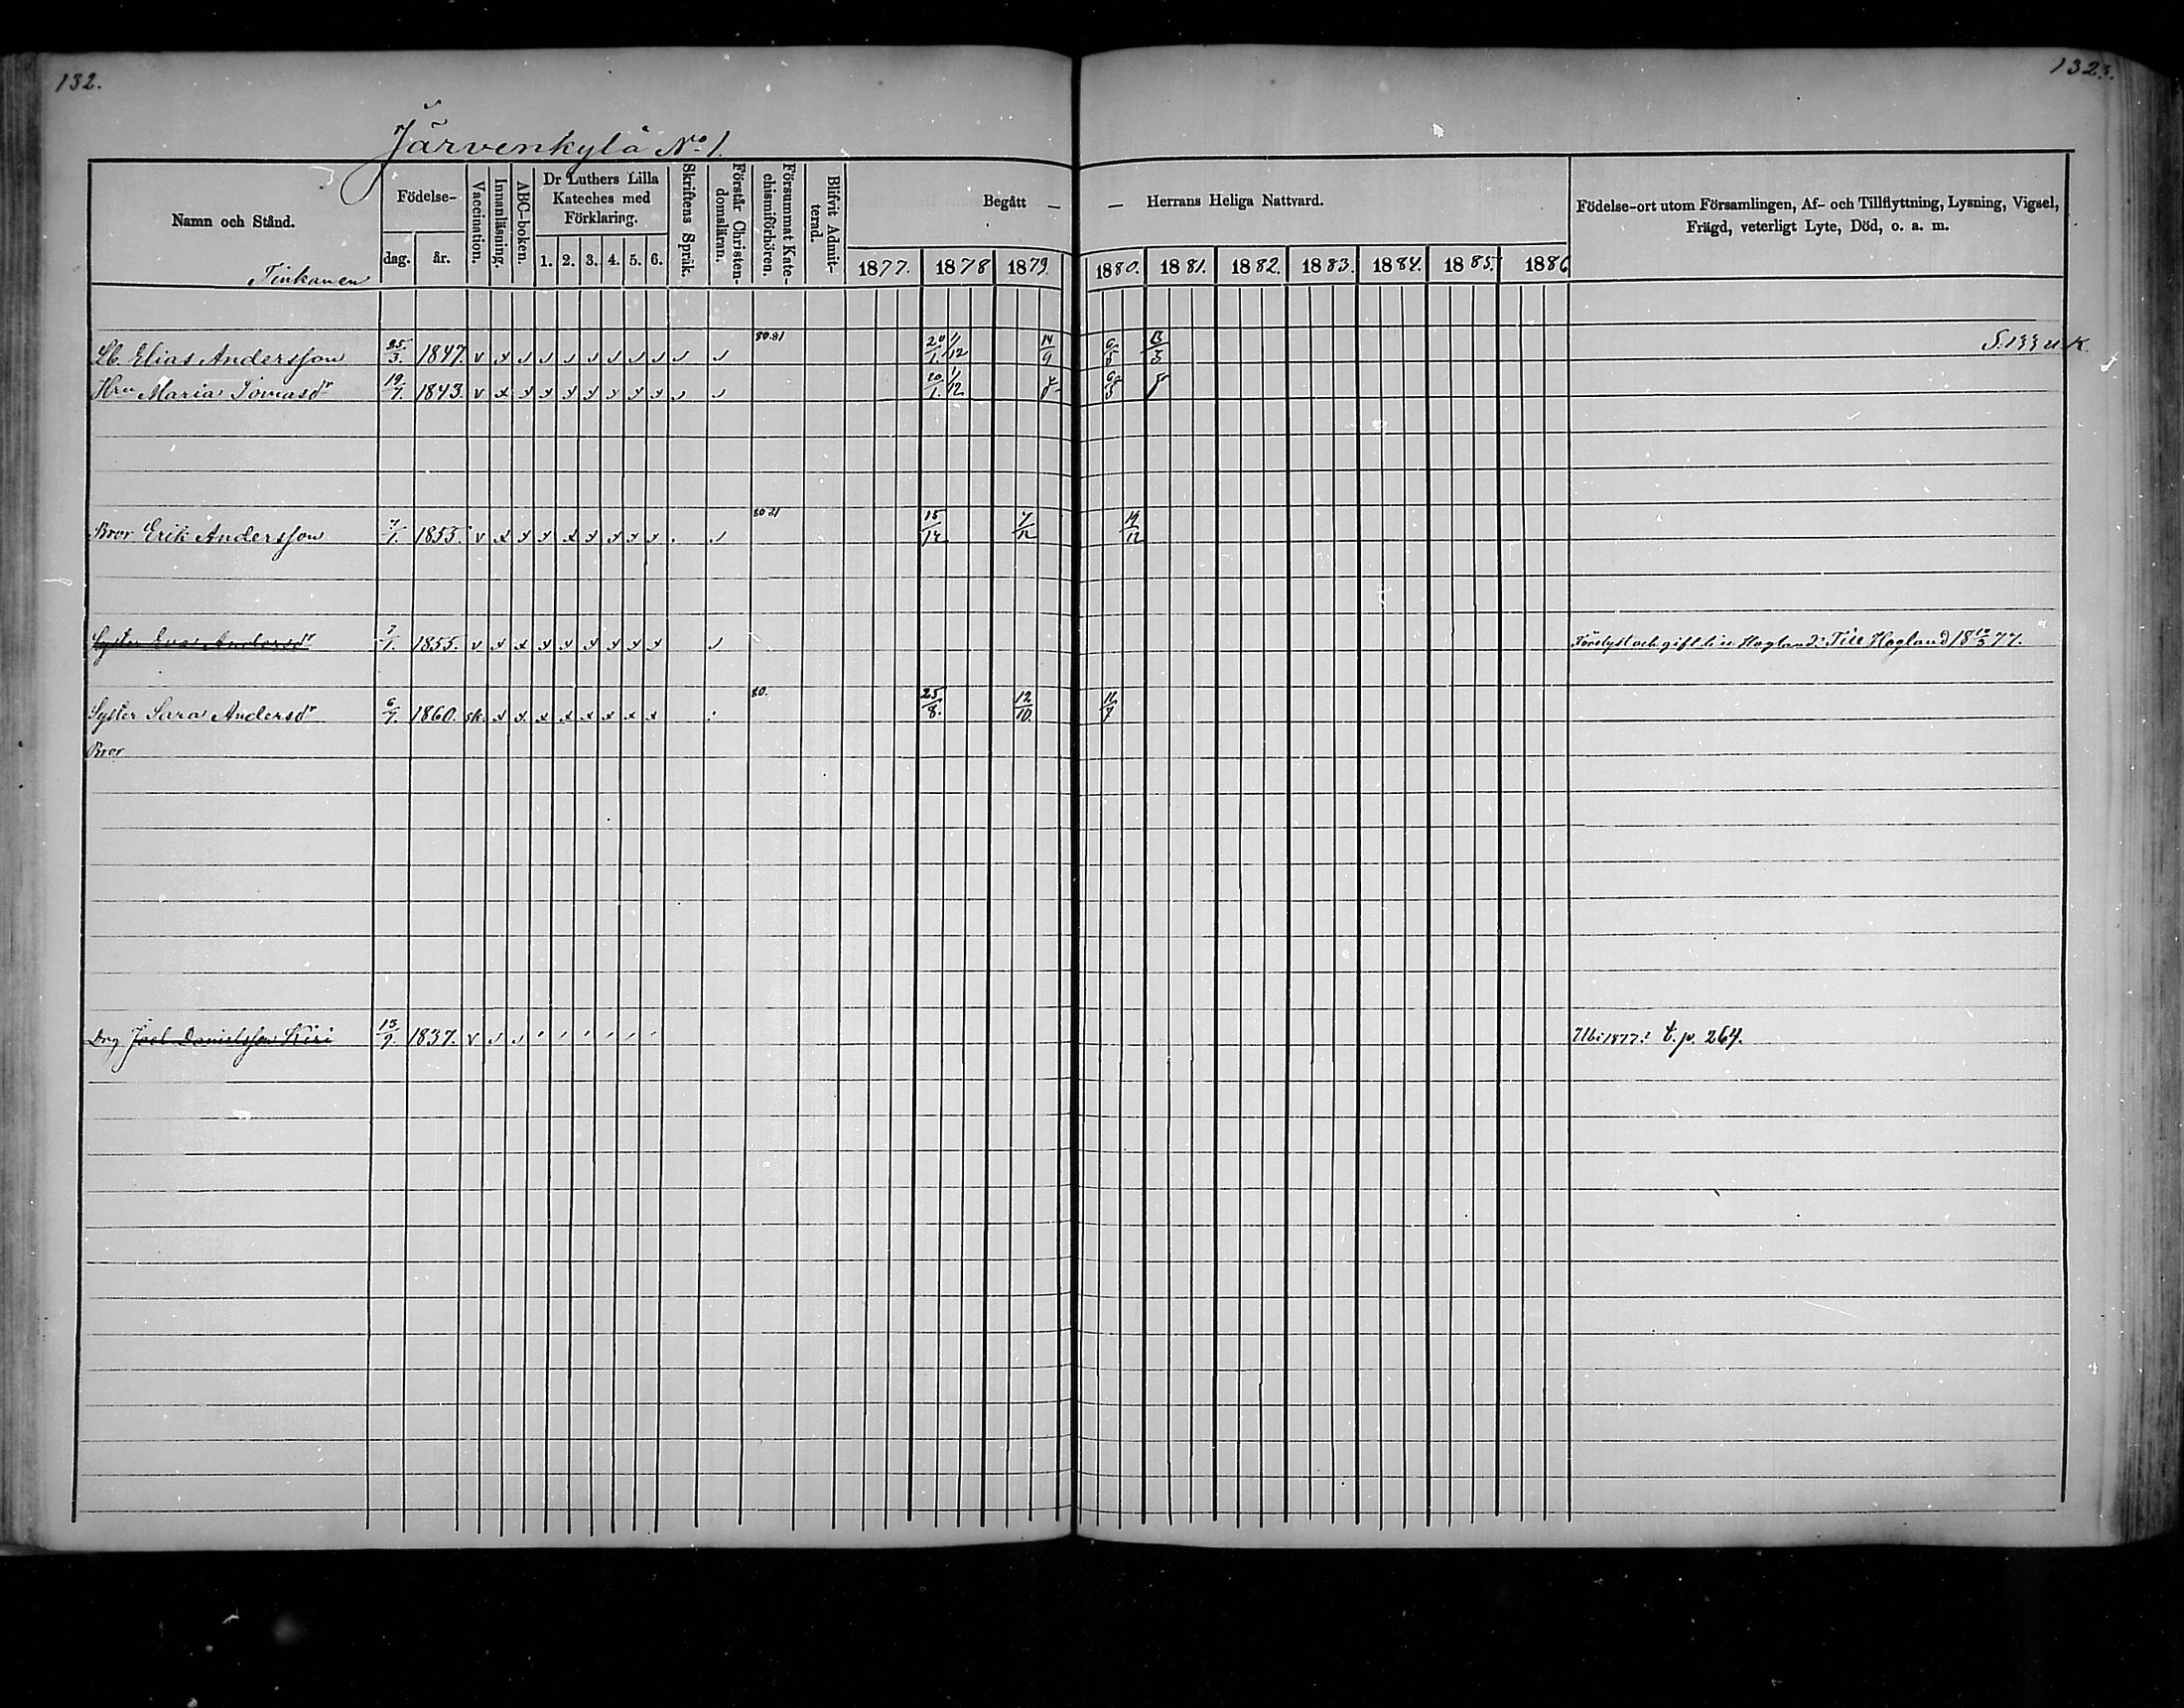 132.
132.
Järvenkylä No 1.
Namn och Stånd.
Födelse-
dag.
år.
Vaccination.
Innanläsning.
ABC-boken.
Dr Luthers Lilla
Kateches med
Förklaring.
1. 2. 3. 4. 5. 6.
Skriftens Språk.
Förstår Christen-
domsläran.
Försummat Kate-
chismiförhören.
Blifvit Admit-
terad.
Begått —
— Herrans Heliga Nattvard.
1877. 1878 1879 1880. 1881. 1882. 1883. 1884. 1885. 1886
Födelse-ort utom Församlingen, Af- och Tillflyttning, Lysning, Vigsel,
Frägd, veterligt Lyte, Död, o. a. m.
Tinkanen
Lb. Elias Andersson 25/3. 1847. v 80.81 20/1. 1/12 14/9 6/5 13/3 S. 133 u.K.
Hru Maria Tomasdr 19/7. 1843. v 20/1. 1/12 6/5
Bror Erik Andersson 7/1. 1855. v 80 81 15/12 7/12 19/12
Syster Eva Andersdr 7/1. 1855. v Till Hogland 18 12/5 77.
Syster Sara Andersdr 6/7. 1860. sk. 80. 25/8. 12/10. 11/7
Bror
Drg Joel Danielsson Kiri 13/9. 1837. v Ubi 1877? t. p. 264.